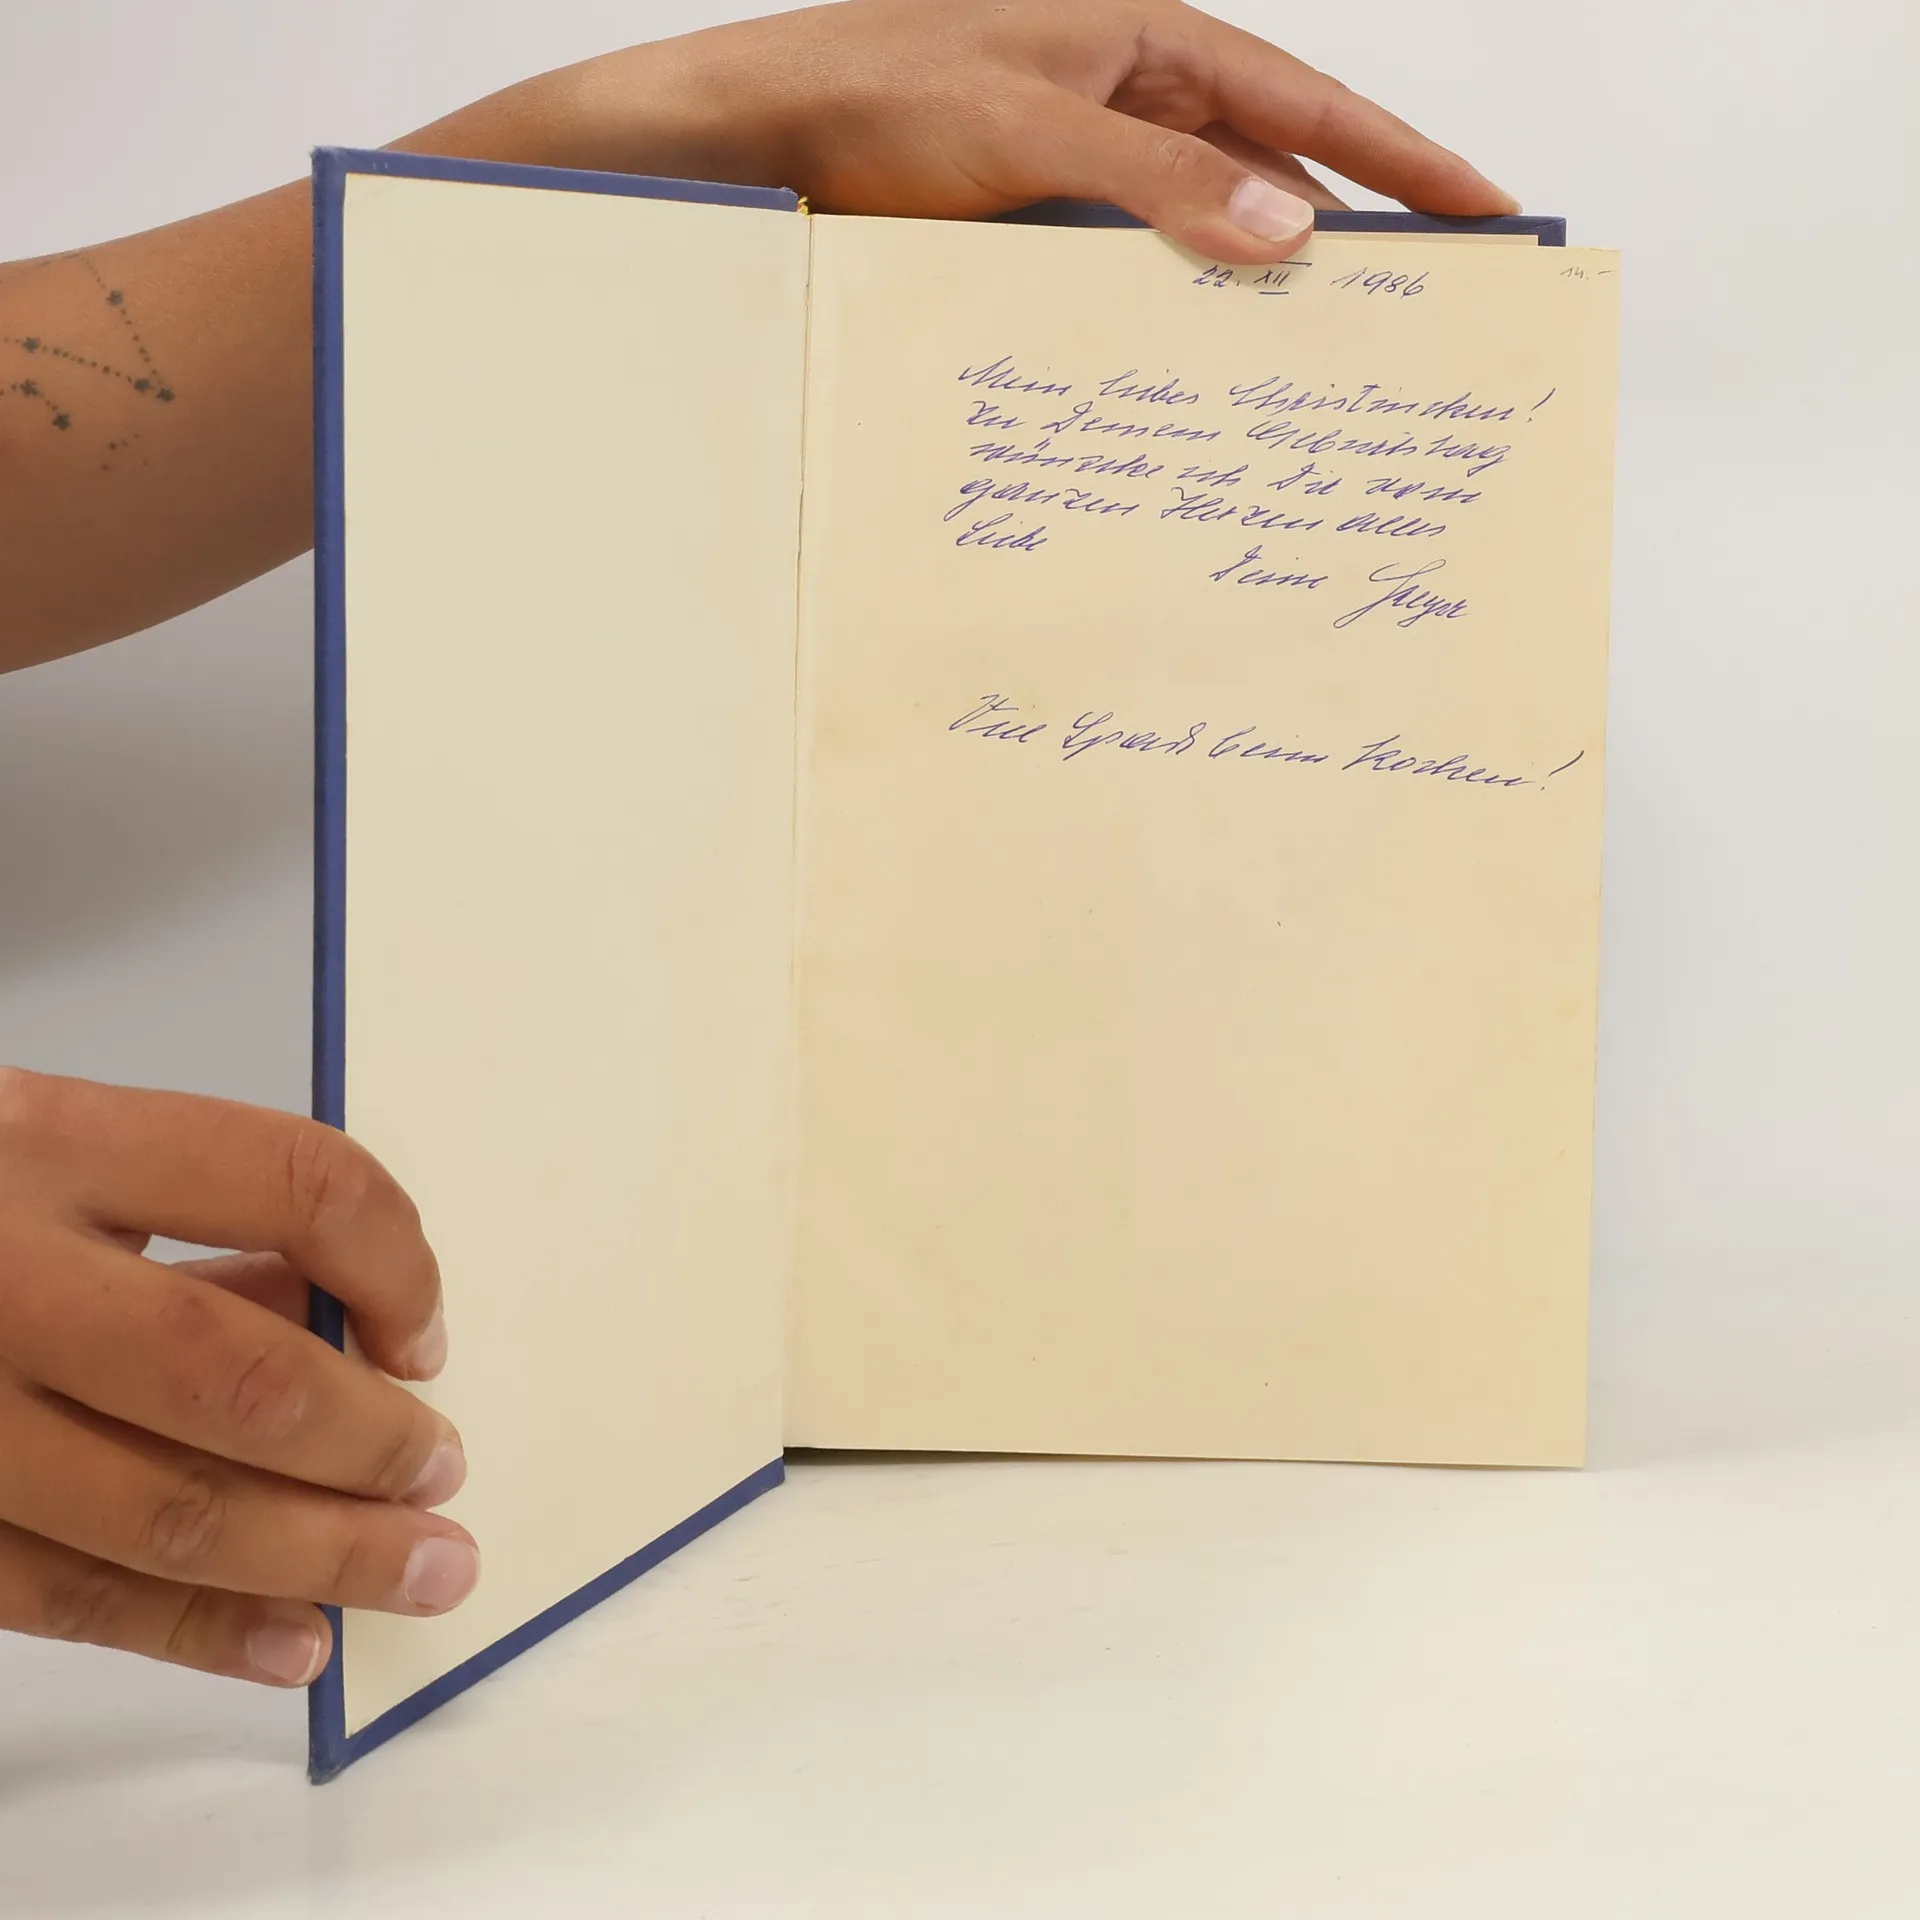 22. XII 1986
14.-
Mein liebes Christinchen!
Zu Deinem Geburtstag
wünsche ich Dir vom
ganzen Herzen alles
Liebe
Deine
Viel Spaß beim Kochen!